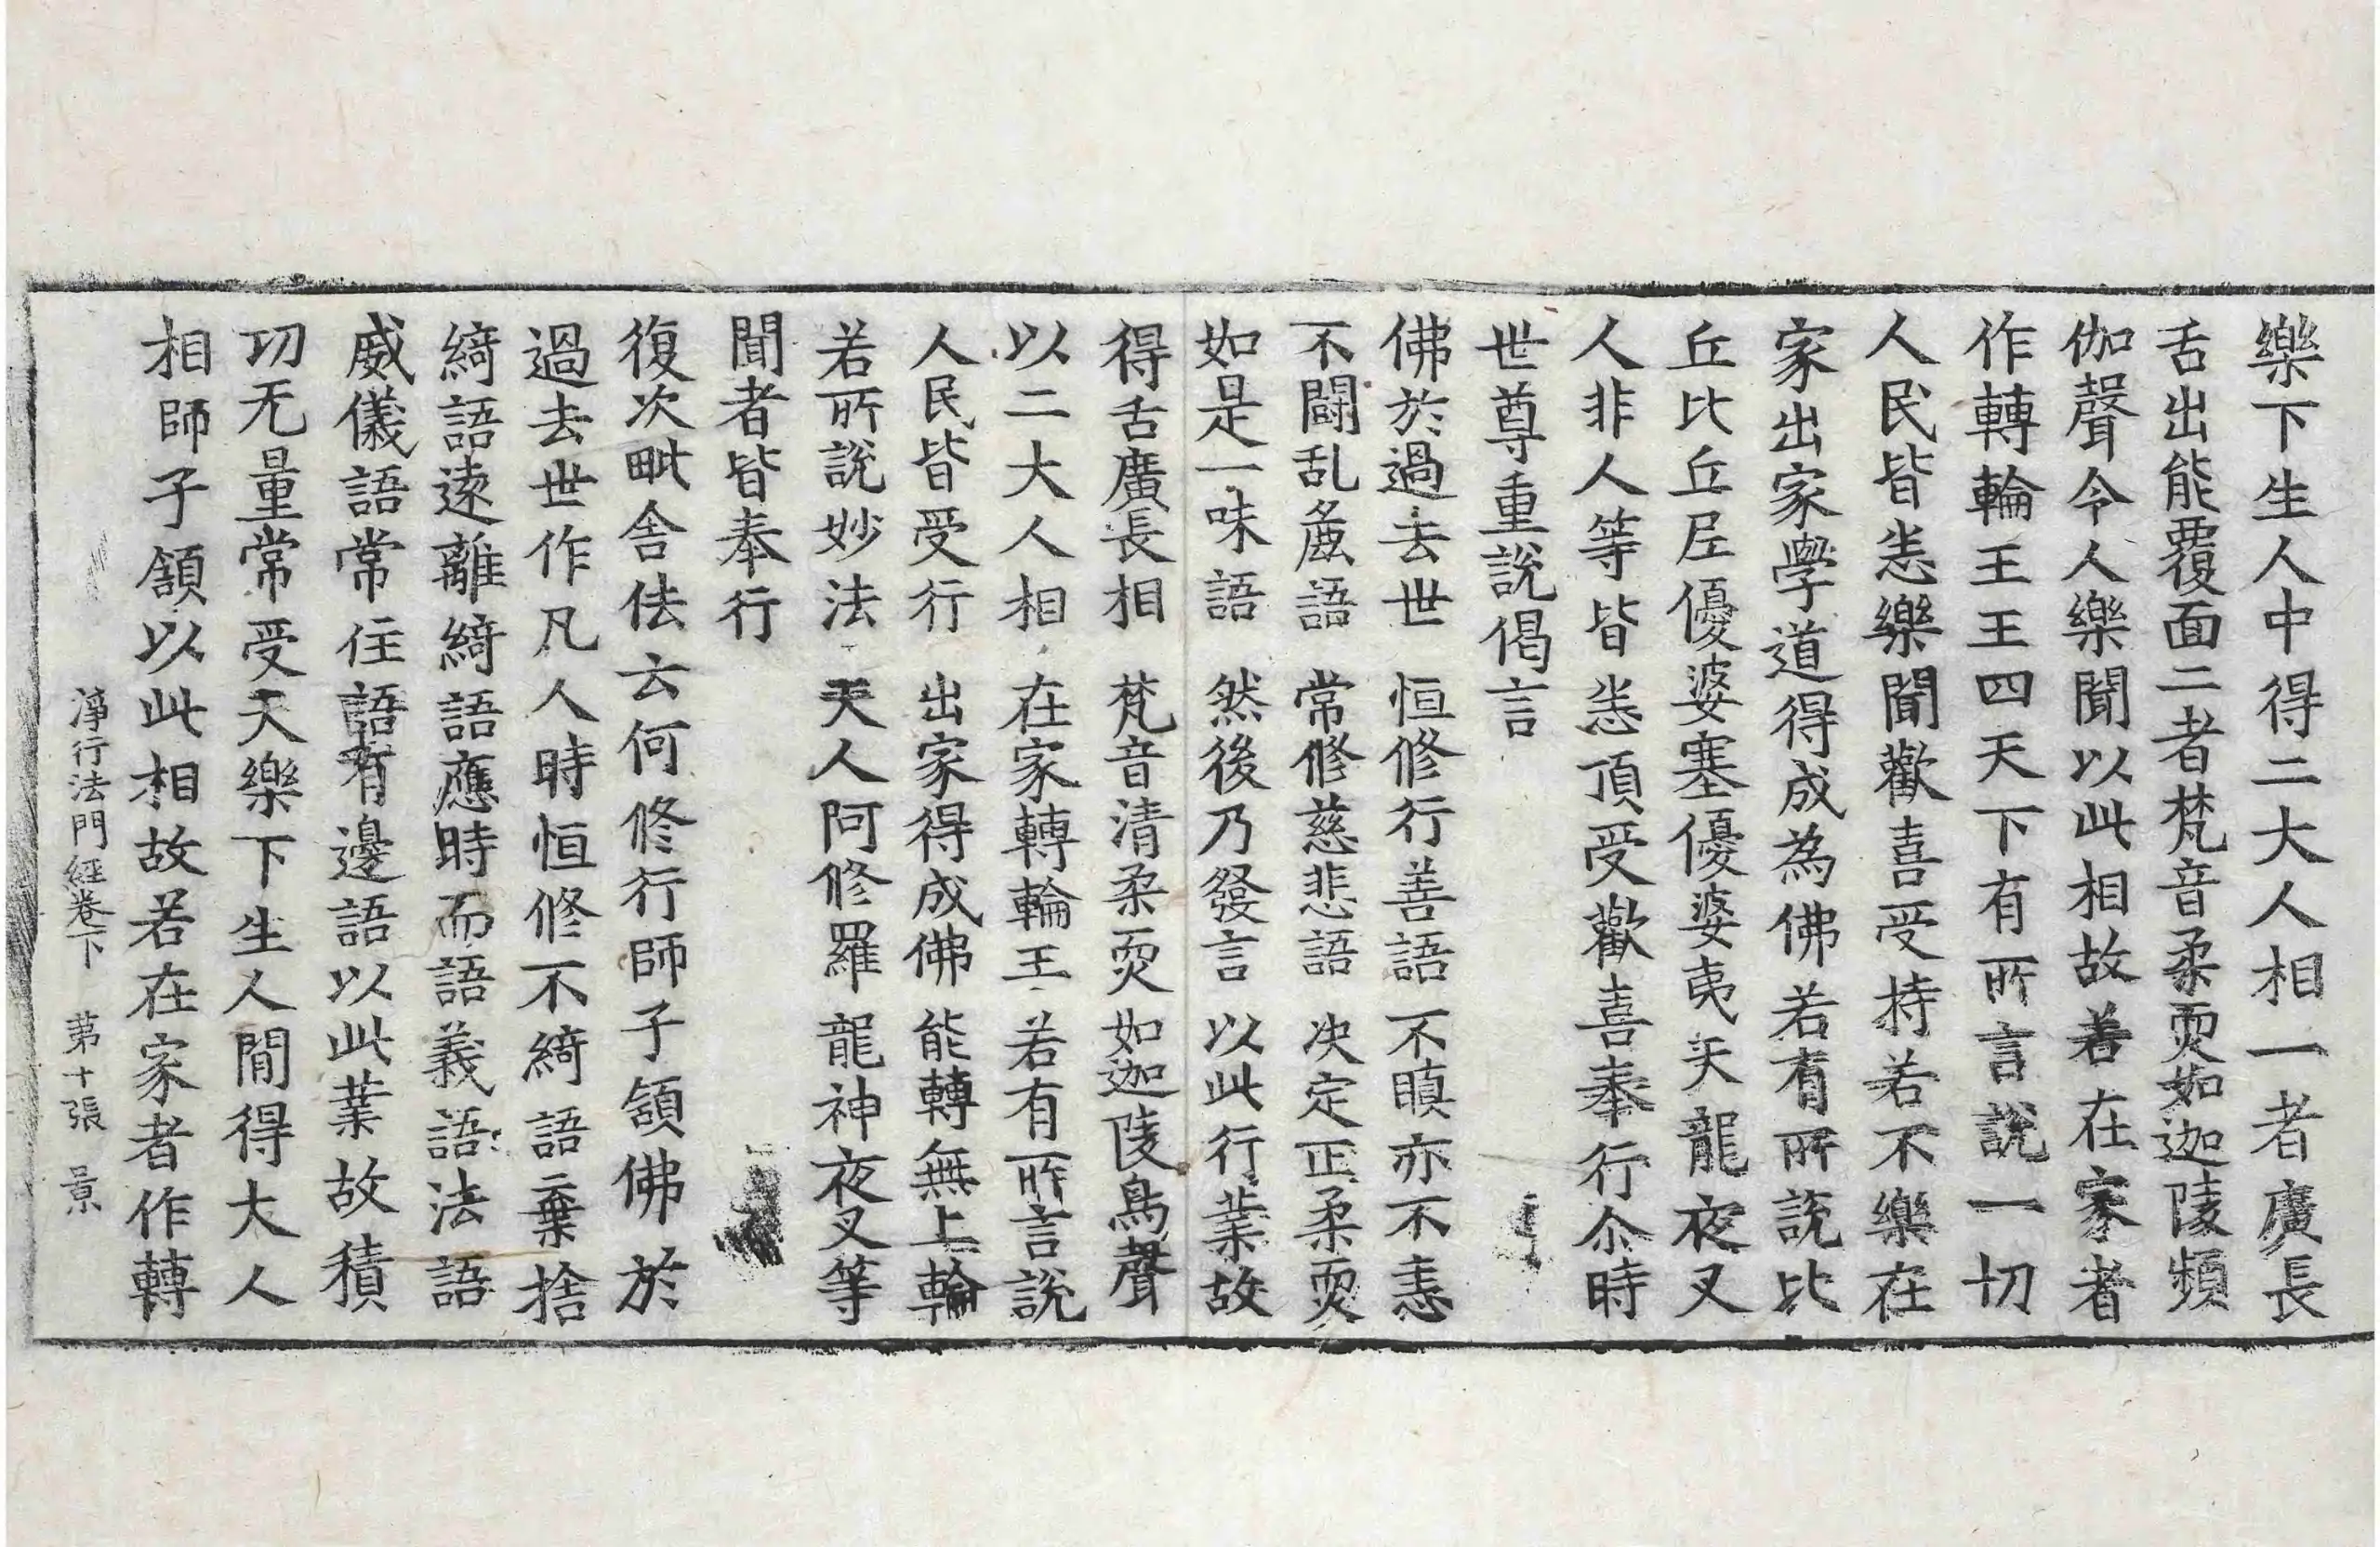 樂下生人中得二大人相一者廣長
舌出能覆面二者梵音柔耎如迦陵頻
伽聲令人樂聞以此相故若在家者
作轉輪王王四天下有所言說一切
人民皆恙樂聞歡喜受持若不樂在
家出家學道得成為佛若有所說比
丘比丘尼優婆塞優婆夷天龍夜叉
人非人等皆恙頂受歡喜奉行尒時
世尊重說偈言
佛於過去世　恒修行善語　不瞋亦不恚
不鬪乱麁語　常修慈悲語　決定正柔耎
如是一味語　然後乃發言　以此行業故
得舌廣長相　梵音清柔耎　如迦陵鳥聲
以二大人相　在家轉輪王　若有所言說
人民皆受行　出家得成佛　能轉無上輪
若所說妙法　天人阿修羅　龍神夜叉等
聞者皆奉行
復次毗舍佉云何修行師子頷佛於
過去世作凡人時恒修不綺語棄捨
綺語遠離綺語應時而語義語法語
威儀語常住語有邊語以此業故積
功无量常受天樂下生人閒得大人
相師子頷以此相故若在家者作轉
淨行法門經卷下　苐十張　景